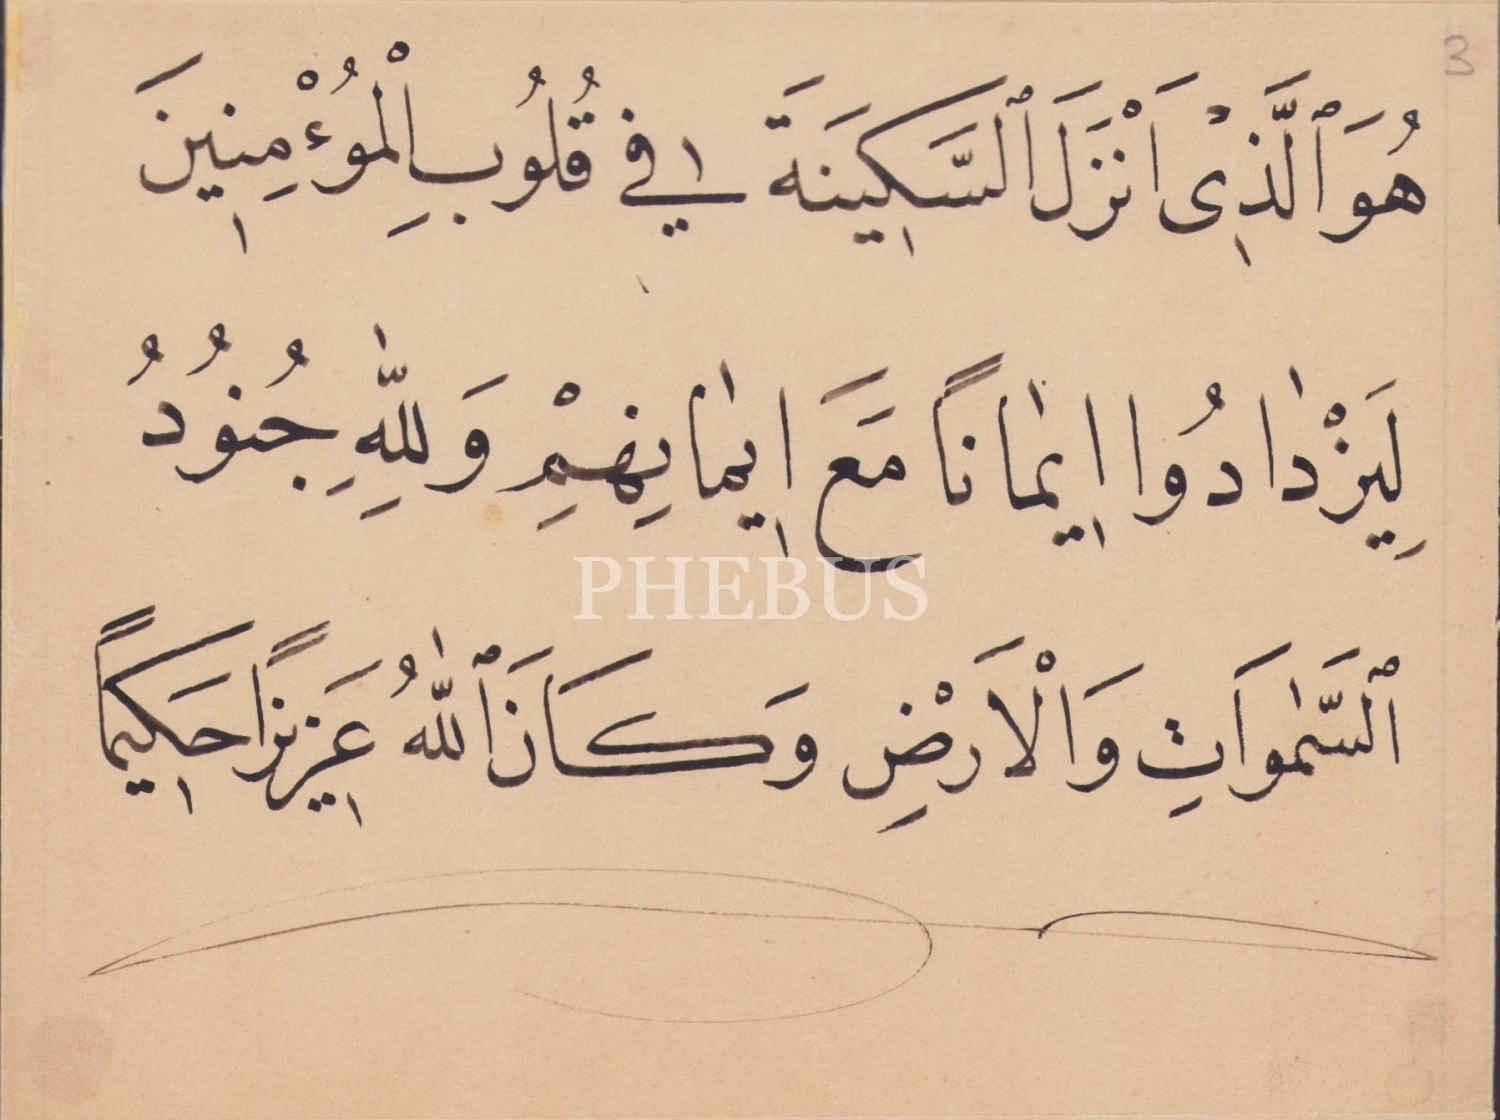 3
هُوَ ٱلَّذِىٓ اَنْزَلَ ٱلسَّكِينَةَ فِي قُلُوبِ الْمُؤْمِنِينَ
لِيَزْدَادُوا اِيمَانًا مَعَ اِيمَانِهِمْ وَلِلّٰهِ جُنُودُ
PHEBUS
ٱلسَّمٰوَاتِ وَالْاَرْضِ وَكَانَ ٱللّٰهُ عَزِيزًا حَكِيمًا